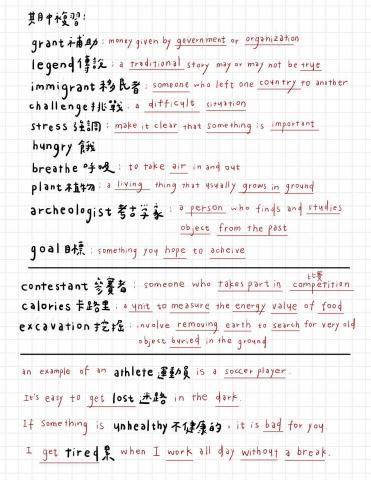 期中複習:
grant 補助: money given by government or organization
legend 傳說: a traditional story may or may not be true
immigrant 移民者: someone who left one country to another
challenge 挑戰: a difficult situation
stress 強調: make it clear that something is important
hungry 餓
breathe 呼吸: to take air in and out
plant 植物: a living thing that usually grows in ground
archeologist 考古學家: a person who finds and studies
object from the past
goal 目標: something you hope to acheive
比賽
contestant 參賽者: someone who takes part in competition
calories 卡路里: a unit to measure the energy value of food
excavation 挖掘: involve removing earth to search for very old
object buried in the ground
an example of an athlete 運動員 is a soccer player.
It's easy to get lost 迷路 in the dark.
If something is unhealthy 不健康的, it is bad for you.
I get tired 累 when I work all day without a break.